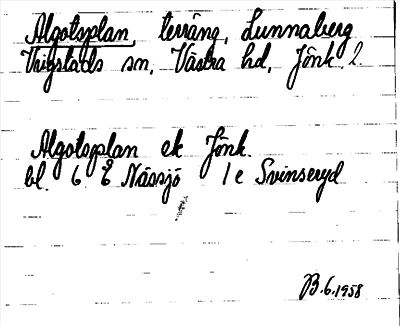 Algotsplan, terräng, Lunnaberg
Vrigstads sn, Västra hd, Jönk. l.
Algotsplan ek Jönk.
bl. 6 E Nässjö 1 e Svinseryd
B.6.1958